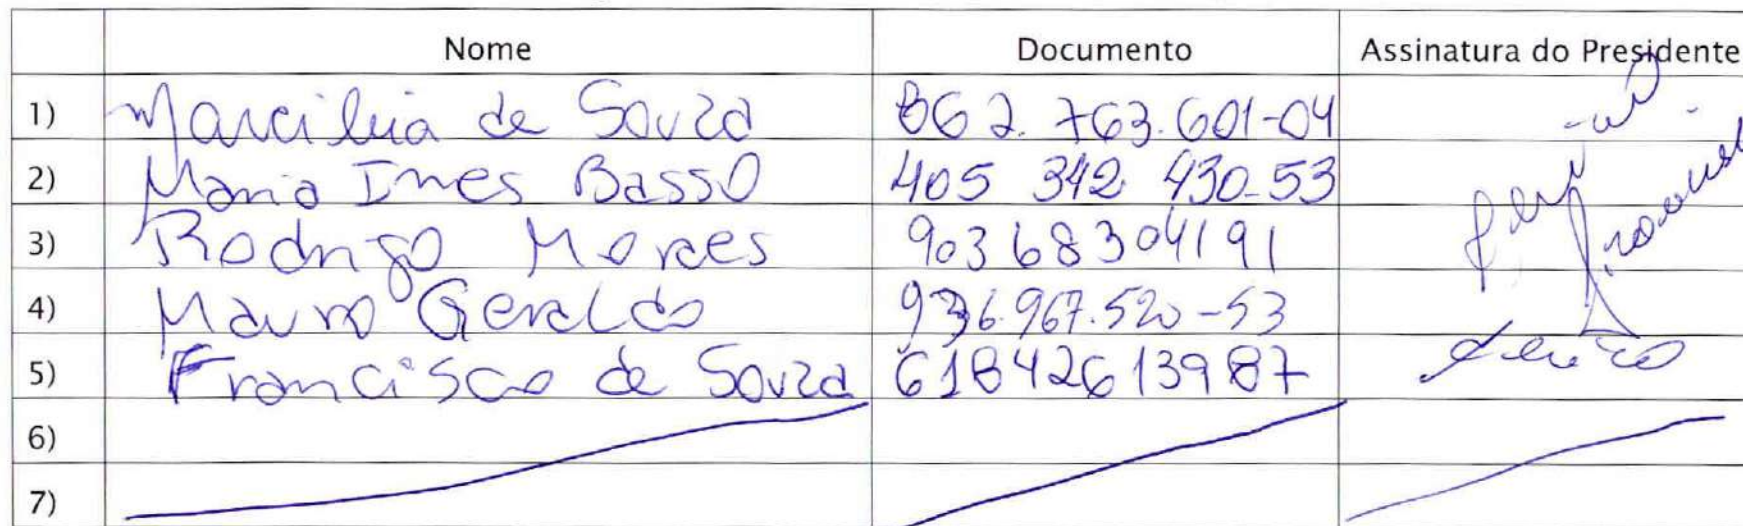 Nome Documento Assinatura do Presidente
1) Marcilia de Souza 862.763.601-04
2) Maria Ines Basso 405 342 430-53
3) Rodrigo Moraes 90368304191
4) Mauro Geraldo 936.967.520-53
5) Francisco de Souza 61842613987
6)
7)